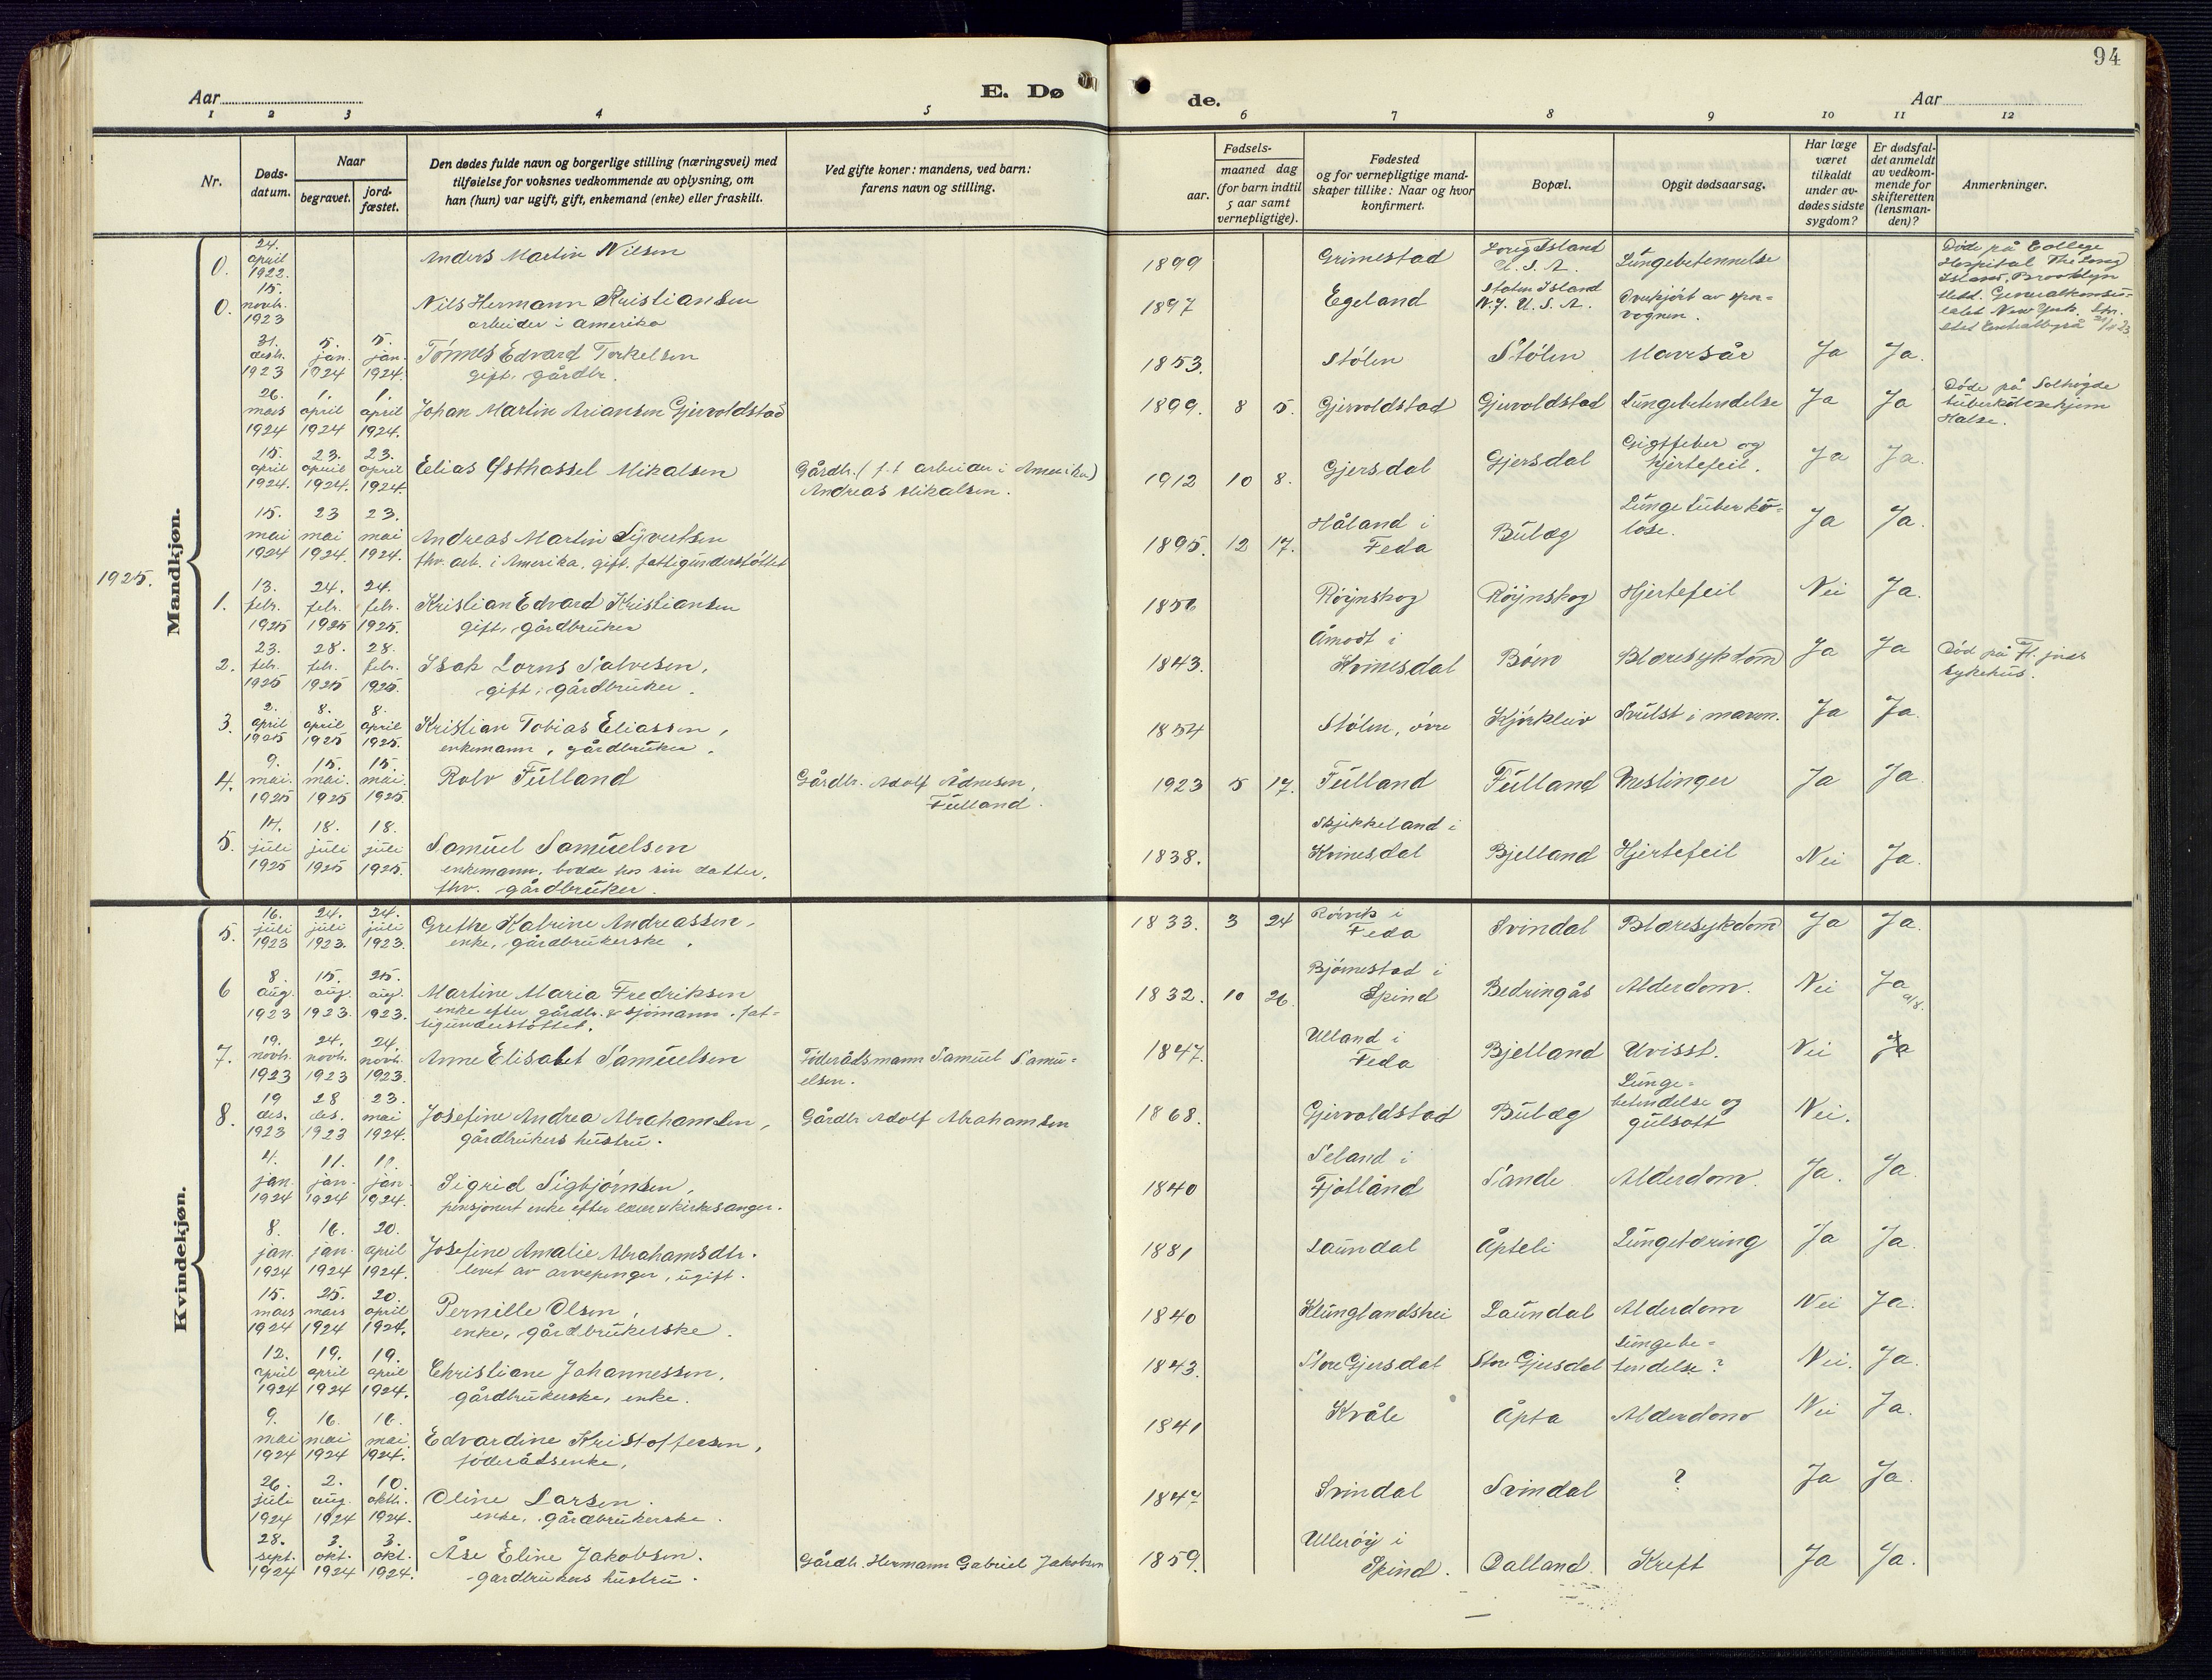 94
Aar
E. Dø
de.
Aar
1 2 3 4 5 6 7 8 9 10 11 12
Nr.
Døds-
datum.
Naar
begravet.
jord-
fæstet.
Den dødes fulde navn og borgerlige stilling (næringsvei) med
tilføielse for voksnes vedkommende av oplysning, om
han (hun) var ugift, gift, enkemand (enke) eller fraskilt.
Ved gifte koner: mandens, ved barn:
farens navn og stilling.
Fødsels-
aar.
maaned dag
(for barn indtil
5 aar samt
vernepligtige).
Fødested
og for vernepligtige mand-
skaper tillike: Naar og hvor
konfirmert.
Bopæl.
Opgit dødsaarsag.
Har læge
været
tilkaldt
under av-
dødes sidste
sygdom?
Er dødsfal-
det anmeldt
av vedkom-
mende for
skifteretten
(lensman-
den)?
Anmerkninger.
Mandkjøn.
0. 24. april 1922. Anders Martin Nilsen 1899 Grimestad Long Island U. S. A. Lungebetennelse Døde på College
Hospital The Long
Island, Brooklyn
0. 15. novb. 1923 Nils Hermann Kristiansen 1897 Egeland Staten Island N.J. U. S. A. Overkjørt av spor-
vognen. Medd. Generalkonsu-
latet New York.
arbeider i Amerika
31. desb. 1923 5. jan. 1924 5. jan. 1924. Tønnes Edvard Torkelsen 1853. Stølen Stølen Mavesår Ja Ja.
gift, gårdbr.
26. mars 1924 1. april 1924 1. april 1924. Johan Martin Ariansen Gjervoldstad 1899. 8 5. Gjervoldstad Gjervoldstad Lungebetendelse Ja Ja Døde på Solhøgde
tuberkulosehjem
Halse.
15. april 1924. 23. april 1924. 23. april 1924. Elias Østhassel Mikalsen Gårdbr. (f. t. arbeider i Amerika)
Andreas Mikalsen. 1912 10 8. Gjersdal Gjersdal Gigtfeber og
hjertefeil. Ja Ja.
15. mai 1924 23 mai 1924. 23. mai 1924. Andreas Martin Syvertsen 1895. 12 17. Håland i
Feda Bulæg Lungetuberku-
lose. Ja Ja.
fhv. arb. i Amerika, gift, fattigunderstøttet
1925.
1. 13. febr. 1925 24. febr. 1925 24. febr. 1925. Kristian Edvard Kristiansen 1856 Røynskog Røynskog Hjertefeil Nei Ja.
gift, gårdbruker
2. 23. febr. 1925 28. febr. 1925 28. febr. 1925. Isak Lorns Salvesen, 1843. Åmodt i
Kvinesdal Bøen Blæresykdom Ja Ja Død på Fl. jords
sykehus.
gift, gårdbruker.
3. 2. april 1925 8. april 1925 8. april 1925. Kristian Tobias Eliassen, 1854 Stølen, øvre Kjørkleiv Svulst i maven. Ja Ja.
enkemann, gårdbruker.
4. 9. mai. 1925 15. mai. 1925 15. mai. 1925. Rolv Fulland Gårdbr. Adolf Ådnesen,
Fulland. 1923 5 17. Fulland Fulland Meslinger Ja Ja.
5. 14. juli 1925 18. juli 1925 18. juli 1925. Samuel Samuelsen 1838. Skjekkeland i
Kvinesdal Bjelland Hjertefeil Nei Ja.
enkemann, bodde hos sin datter,
fhv. gårdbruker.
Kvindekjøn.
5. 16. juli 1923 24. juli 1923. 24. juli 1923. Grethe Katrine Andreassen, 1833. 3 24 Rørvik i
Feda Svindal Blæresykdom Ja Ja.
enke, gårdbrukerske.
6 8. aug. 1923 15. aug. 1923. 25. aug. 1923. Martine Maria Fredriksen 1832. 10 26. Bjørnestad i
Spind Bedringås Alderdom. Nei Ja
enke efter gårdbr. & sjømann, fat-
tigunderstøttet.
7. 19. novb. 1923 24. novb. 1923 24. novb. 1923. Anne Elisabet Samuelsen Føderådsmann Samuel Samu-
elsen. 1847. Ulland i
Feda Bjelland Uvisst. Nei Ja
8. 19 des. 1923 28 des. 1923 23. mai 1924. Josefine Andrea Abrahamsen, Gårdbr Adolf Abrahamsen 1868. Gjervoldstad Bulæg Lunge-
betendelse og
gulsott Nei.
gårdbrukers hustru.
4. jan. 1924 11. jan. 1924 11. jan. 1924. Sigrid Sigbjørnsen, 1840 Seland i
Fjotland Sande Alderdom. Ja. Ja.
pensjonert enke efter lærer & kirkesanger.
8. jan. 1924 16. jan. 1924 20. april 1924. Josefine Amalie Abrahamsdtr. 1881 Laundal Åpteli Lungetæring Ja Ja.
levet av arvepenger, ugift.
15. mars 1924 25. mars 1924 20. april 1924. Pernille Olsen, 1840 Klunglandshei Laundal Alderdom Nei Ja.
enke, gårdbrukerske.
12. april 1924 19. april 1924 19. april 1924. Christiane Johannessen, 1843. Store Gjersdal Store Gjersdal Lungebe-
tendelse? Nei. Ja.
gårdbrukerske, enke.
9. mai 1924 16. mai 1924 16. mai. 1924. Edvardine Kristoffersen, 1841 Kvåle Åpta Alderdom Nei Ja.
føderådsenke,
26. juli 1924 2. aug. 1924 10. oktb. 1924. Oline Larsen. 1847 Svindal Svindal ? Ja Ja.
enke, gårdbrukerske.
28. sept. 1924 3. okt. 1924 3. okt. 1924. Åse Eline Jakobsen. Gårdb. Hermann Gabriel Jakobsen 1859. Ullerøy i
Spind. Dalland. Kreft Ja Ja.
gårdbrukers hustru.